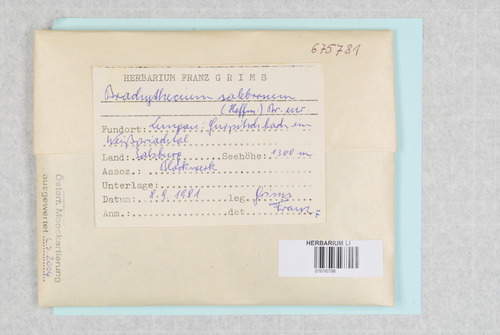 675781
HERBARIUM FRANZ GRIMS
Brachythecium salebrosum
(Hoffm.) Br. eur.
Fundort: Lungau: bach im
Weißpriachtal
Land: Salzburg Seehöhe: 1300 m
Assoz.: Blockwerk
Unterlage:
Datum: 8.9.1981 leg. Grims
Anm.: det. Franz F
Österr. Mooskartierung
ausgewertet 2004
HERBARIUM LI